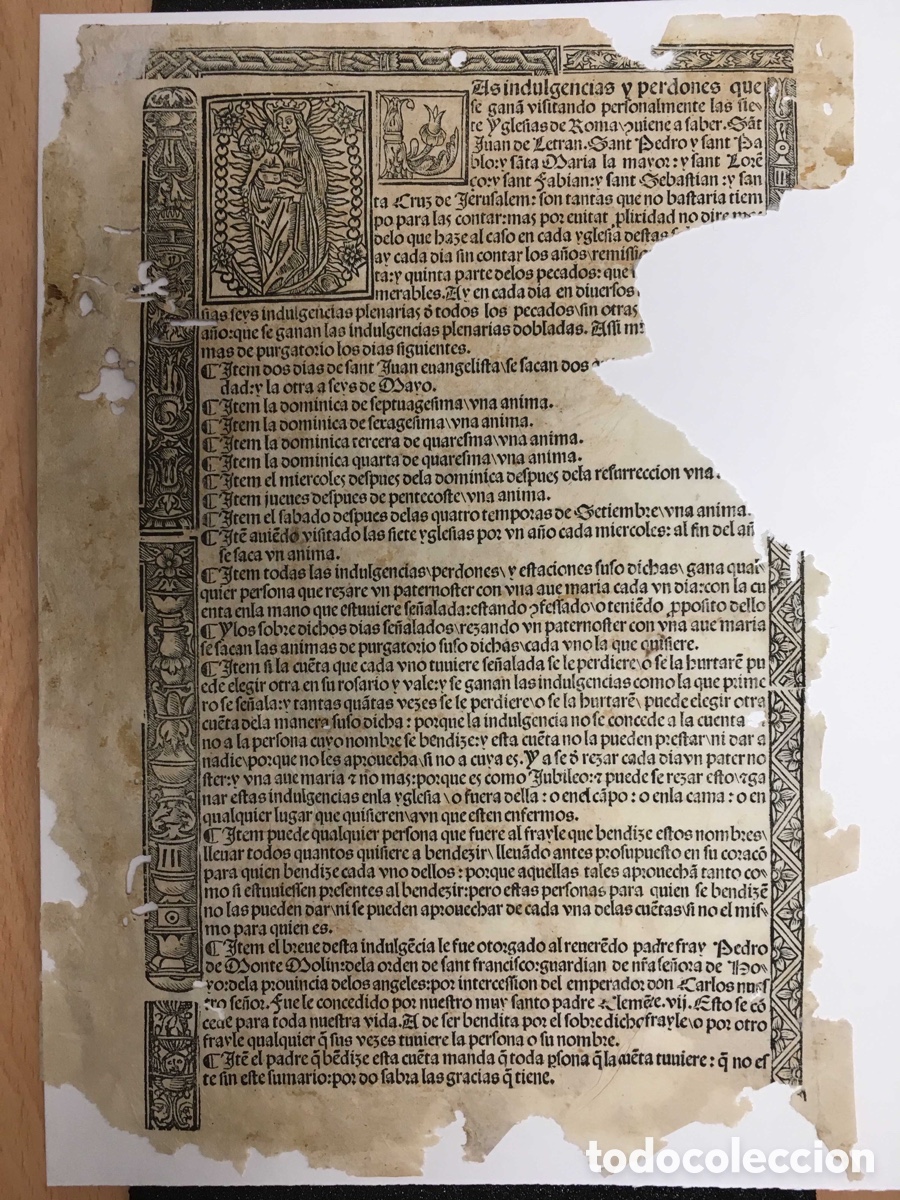 LAs indulgencias y perdones que
se ganã visitando personalmente las sie-
te Yglesias de Roma\ ↄuiene a saber. Sãt
Juan de Letran. Sant Pedro y sant Pa
blo: y sãta Maria la mayor: y sant Lorẽ
ço: y sant Fabian: y sant Sebastian: y san
ta Cruz de Jerusalem: son tantas que no bastaria tiem
po para las contar: mas por euitar ꝓlixidad no dire
delo que haze al caso en cada yglesia destas
ay cada dia sin contar los años\
ta: y quinta parte delos pecados: que
merables. Ay en cada dia en diuersos
nas seys indulgencias plenarias õ todos los pecados\ sin otras
año: que se ganan las indulgencias plenarias dobladas. Assi
mas de purgatorio los dias siguientes.
¶ Item dos dias de sant Juan euangelista\ se sacan dos
dad: y la otra a seys de Mayo.
¶ Item la dominica de septuagesima\ vna anima.
¶ Item la dominica de sexagesima\ vna anima.
¶ Item la dominica tercera de quaresma\ vna anima.
¶ Item la dominica quarta de quaresma\ vna anima.
¶ Item el miercoles despues dela dominica despues dela resurreccion vna
¶ Item jueues despues de pentecoste\ vna anima.
¶ Item el sabado despues delas quatro temporas de Setiembre\ vna anima.
¶ Itẽ auiẽdo visitado las siete yglesias por vn año cada miercoles: al fin del añ
se saca vn anima.
¶ Item todas las indulgencias\ perdones\ y estaciones suso dichas\ gana qual
quier persona que rezare vn paternoster con vna aue maria cada vn dia: con la cu
enta enla mano que estuuiere señalada: estando ↄfessado\ o teniẽdo ꝓposito dello
¶ Y los sobre dichos dias señalados\ rezando vn paternoster con vna aue maria
se sacan las animas de purgatorio suso dichas\ cada vno la que quisiere.
¶ Item si la cuẽta que cada vno tuuiere señalada se le perdiere\ o se la hurtarẽ pu
ede elegir otra en su rosario y vale: y se ganan las indulgencias como la que prime
ro se señala: y tantas quãtas vezes se le perdiere\ o se la hurtarẽ\ puede elegir otra
cuẽta dela manera suso dicha: porque la indulgencia no se concede a la cuenta
no a la persona cuyo nombre se bendize: y esta cuẽta no la pueden prestar\ ni dar a
nadie\ porque no les aprouecha\ si no a cuya es. Y a se õ rezar cada dia vn paterno
ster: y vna aue maria ⁊ no mas: porque es como Jubileo: ⁊ puede se rezar esto\ ⁊ ga
nar estas indulgencias enla yglesia\ o fuera della: o enel cãpo: o enla cama: o en
qualquier lugar que quisieren\ avn que esten enfermos.
¶ Item puede qualquier persona que fuere al frayle que bendize estos nombres\
lleuar todos quantos quisiere a bendezir\ lleuãdo antes prosupuesto en su coraçõ
para quien bendize cada vno dellos: porque aquellas tales aprouechã tanto co-
mo si estuuiessen presentes al bendezir: pero estas personas para quien se bendizẽ
no las pueden dar\ ni se pueden aprouechar de cada vna delas cuẽtas\ si no el mis-
mo para quien es.
¶ Item el breue desta indulgẽcia le fue otorgado al reuerẽdo padre fray Pedro
de Monte Molin: dela orden de sant francisco: guardian de nr̃a señora de Ho-
yo: dela prouincia delos angeles: por intercession del emperador don Carlos nues
tro señor. Fue le concedido por nuestro muy santo padre Clemẽte. vij. Esto se cõ
cede para toda nuestra vida. A de ser bendita por el sobre dicho frayle\ o por otro
frayle qualquier q̃ sus vezes tuuiere la persona o su nombre.
¶ Itẽ el padre q̃ bẽdize esta cuẽta manda q̃ toda ꝑsona q̃ la cuẽta tuuiere: q̃ no es
te sin este sumario: por do sabra las gracias q̃ tiene.
todocoleccion